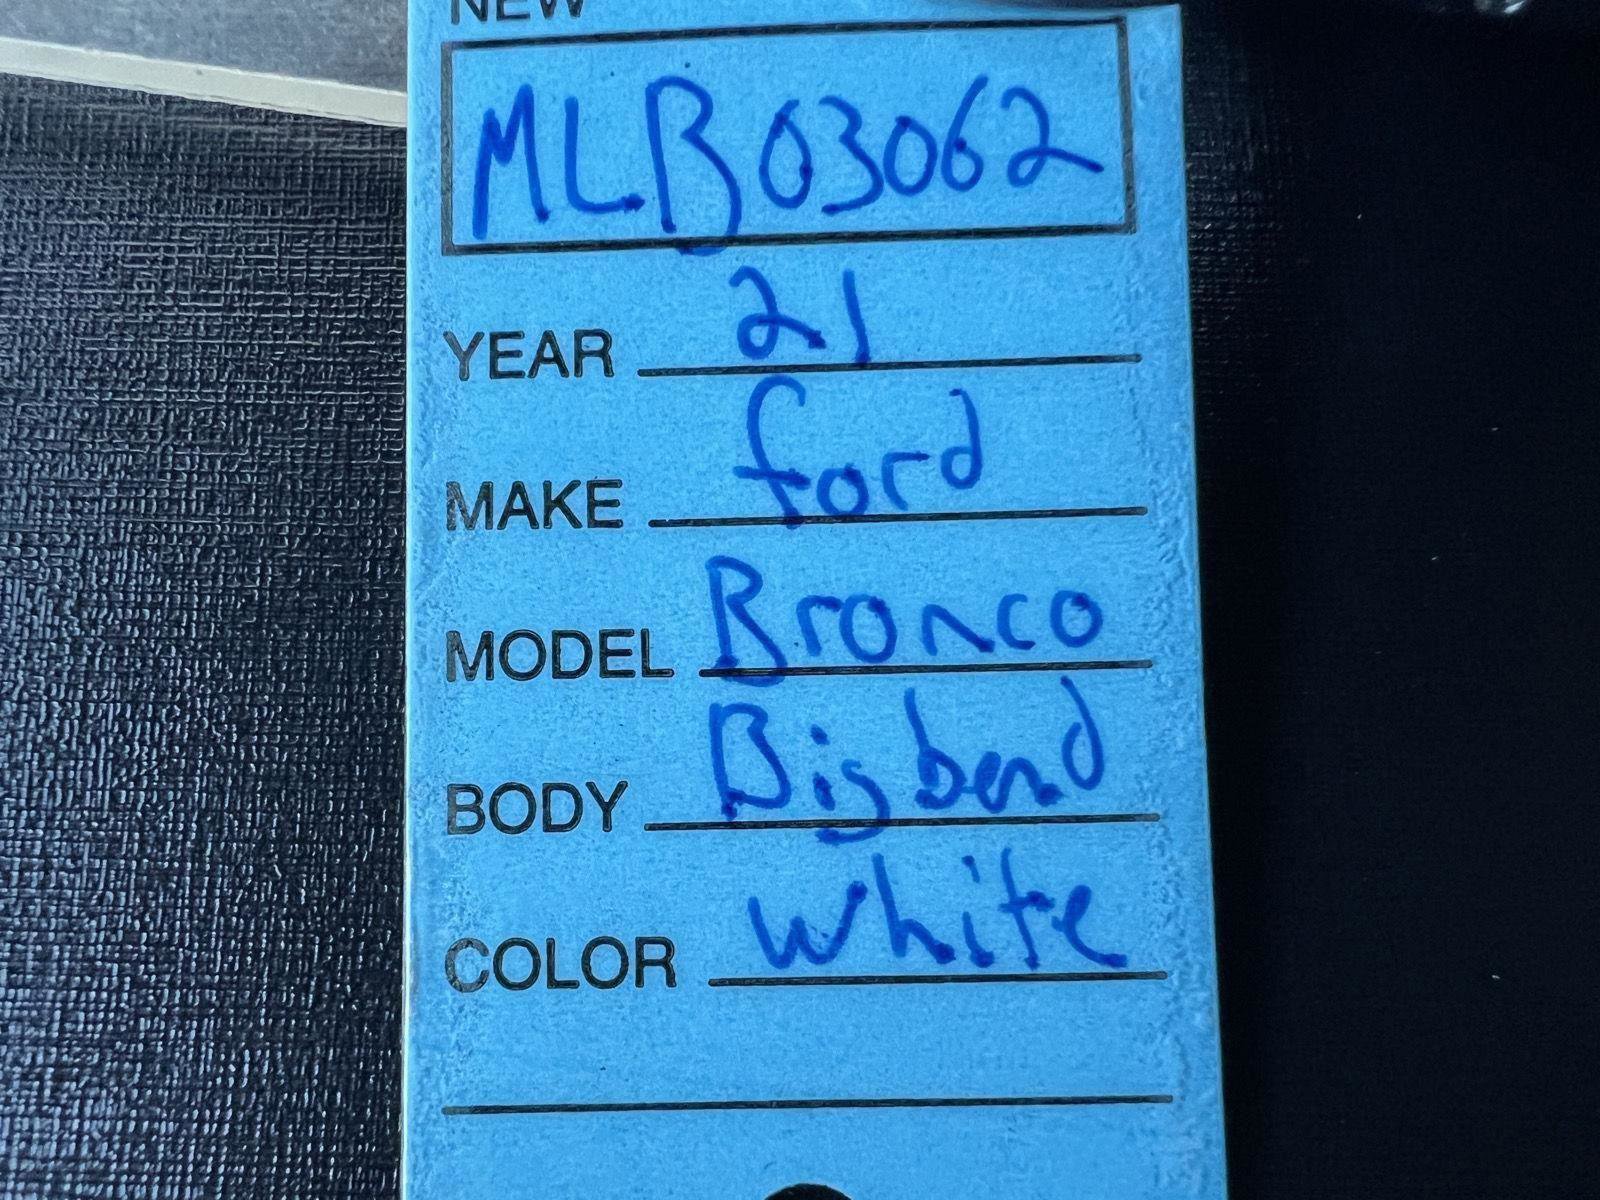 NEW
MLB03062
YEAR 21
MAKE ford
MODEL Bronco
BODY Big bend
COLOR white